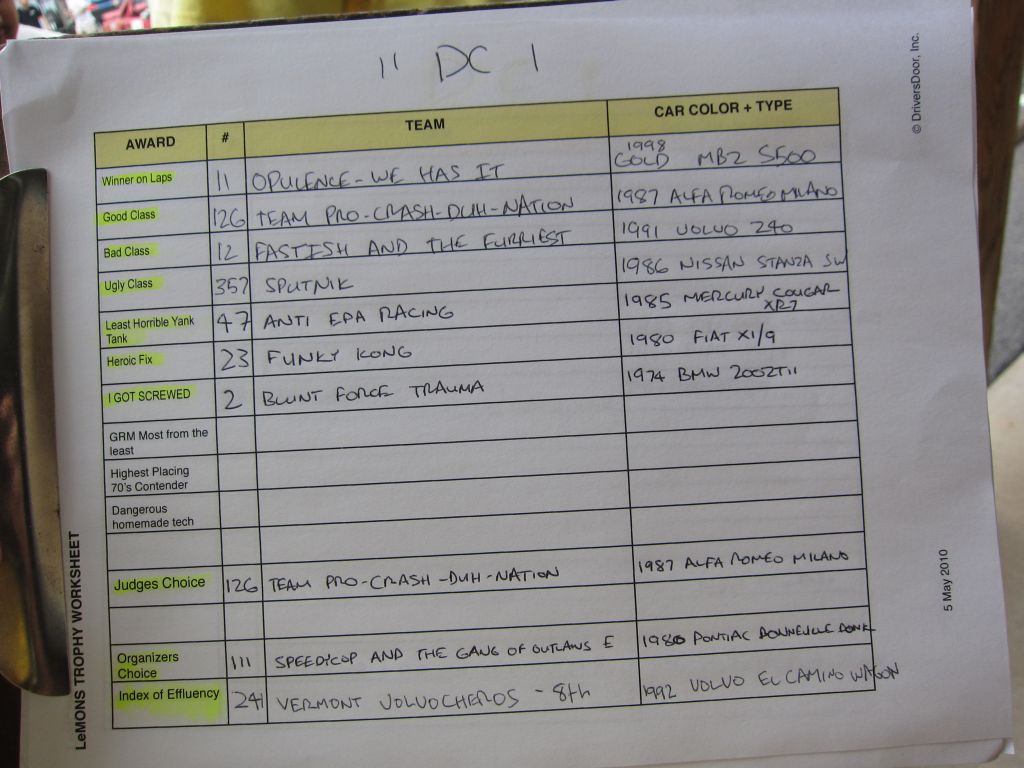 11 DC 1
© DriversDoor, Inc.
AWARD # TEAM CAR COLOR + TYPE
Winner on Laps 11 OPULENCE - WE HAS IT 1998 GOLD MBZ S500
Good Class 126 TEAM PRO-CRASH-DUH-NATION 1987 ALFA ROMEO MILANO
Bad Class 12 FASTISH AND THE FURRIEST 1991 VOLVO 240
Ugly Class 357 SPUTNIK 1986 NISSAN STANZA SW
Least Horrible Yank Tank 47 ANTI EPA RACING 1985 MERCURY COUGAR XR7
Heroic Fix 23 FUNKY KONG 1980 FIAT X1/9
I GOT SCREWED 2 BLUNT FORCE TRAUMA 1974 BMW 2002TII
GRM Most from the
least
Highest Placing
70's Contender
Dangerous
homemade tech
Judges Choice 126 TEAM PRO-CRASH-DUH-NATION 1987 ALFA ROMEO MILANO
Organizers Choice 111 SPEEDYCOP AND THE GANG OF OUTLAWS E 1980 PONTIAC BONNEVILLE DONK
Index of Effluency 241 VERMONT VOLVOCHEROS - 8th 1992 VOLVO EL CAMINO WAGON
LeMONS TROPHY WORKSHEET
5 May 2010